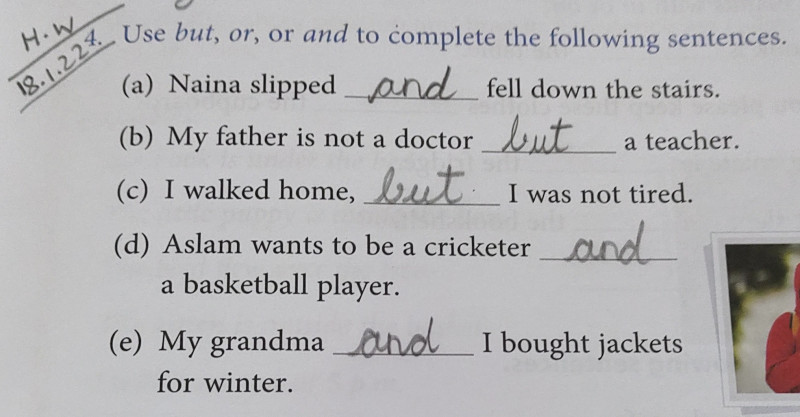 H.W
18.1.22
4. Use but, or, or and to complete the following sentences.
(a) Naina slipped and fell down the stairs.
(b) My father is not a doctor but a teacher.
(c) I walked home, but I was not tired.
(d) Aslam wants to be a cricketer and
a basketball player.
(e) My grandma and I bought jackets
for winter.